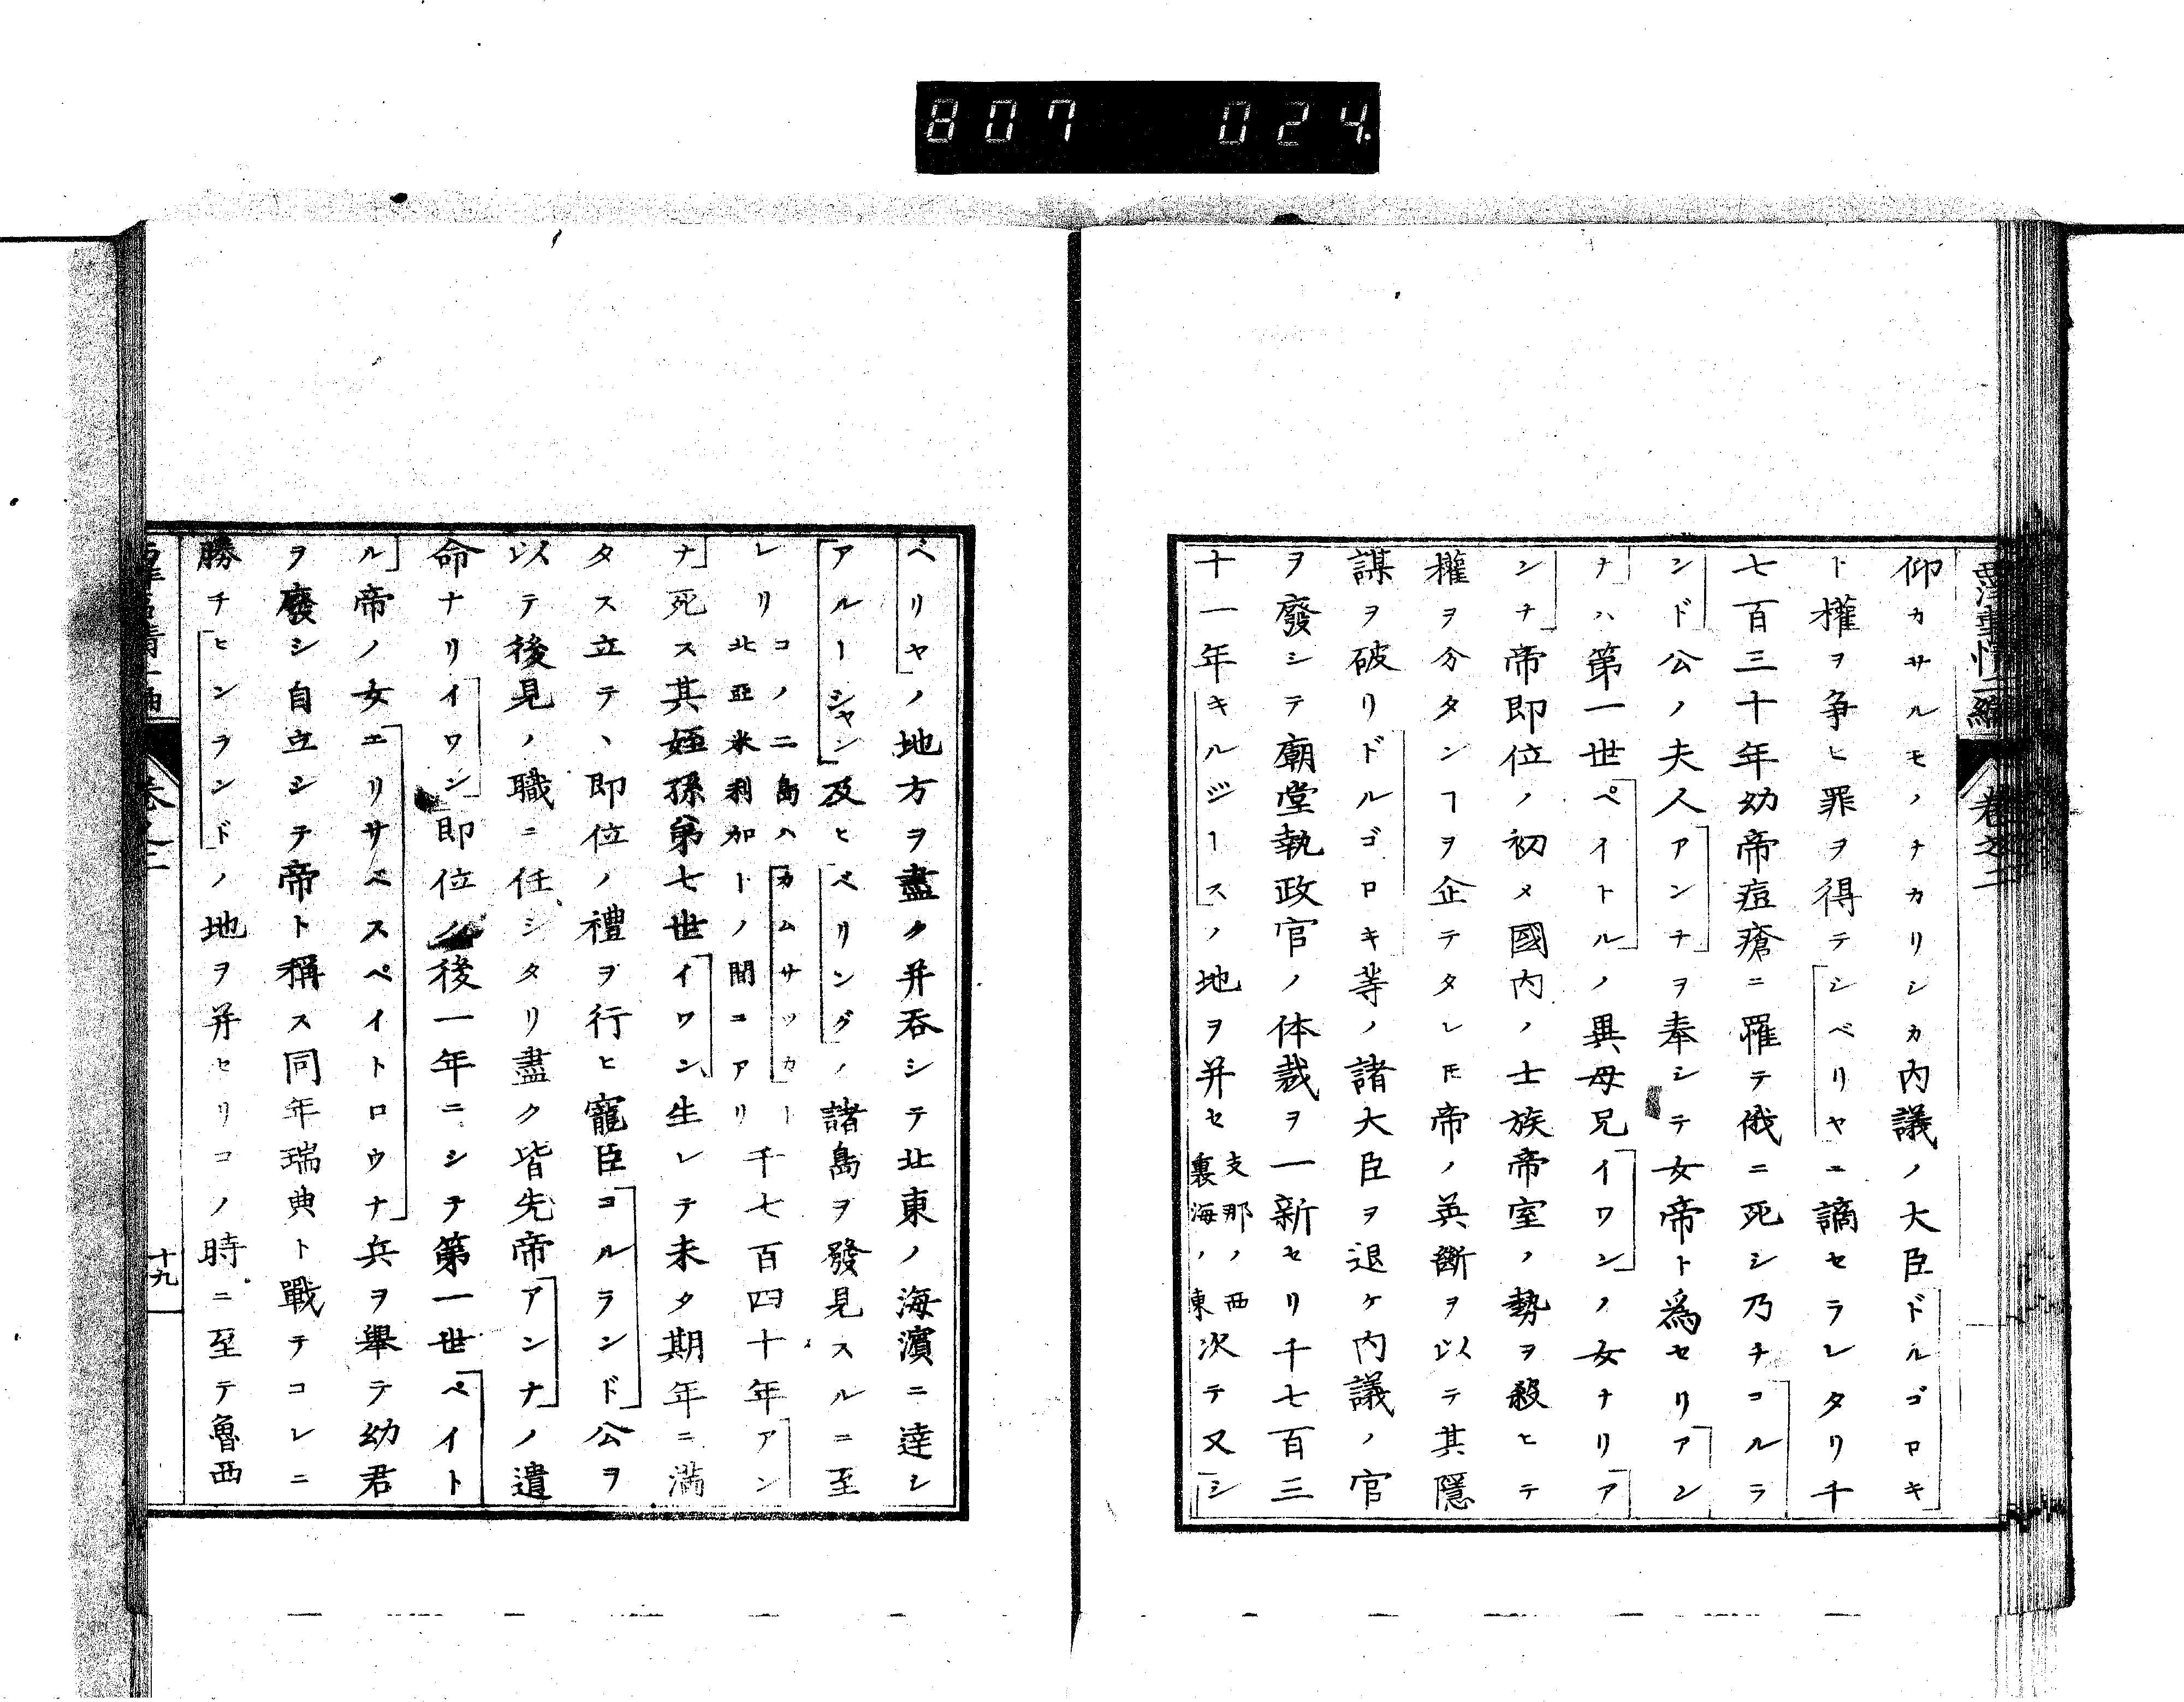 807 024.
西洋事情二編 巻之二
仰カサルモノナカリシカ内議ノ大臣ドルゴロキ
ト權ヲ争ヒ罪ヲ得テシベリヤニ謫セラレタリ千
七百三十年幼帝痘瘡ニ罹テ俄ニ死シ乃チコルラ
ンド公ノ夫人アンナヲ奉シテ女帝ト為セリアン
ナハ第一世ペイトルノ異母兄イワンノ女ナリア
ンナ帝即位ノ初メ國内ノ士族帝室ノ勢ヲ殺ヒテ
權ヲ分タンヿヲ企テタレ𪜈帝ノ英斷ヲ以テ其隱
謀ヲ破リドルゴロキ等ノ諸大臣ヲ退ケ内議ノ官
ヲ廢シテ廟堂執政官ノ体裁ヲ一新セリ千七百三
十一年キルジースノ地ヲ并セ支那ノ西裏海ノ東次テ又シ
ベリヤノ地方ヲ盡ク并呑シテ北東ノ海濱ニ達シ
アルーシャン及ヒベリングノ諸島ヲ發見スルニ至
レリコノ二島ハカムサツカー北亞米利加トノ間ニアリ千七百四十年アン
ナ死ス其姪孫第七世イワン生レテ未タ期年ニ滿
タス立テヽ即位ノ禮ヲ行ヒ寵臣コルランド公ヲ
以テ後見ノ職ニ任シタリ盡ク皆先帝アンナノ遺
命ナリイワン即位ノ後一年ニシテ第一世ペイト
ル帝ノ女エリサベスペイトロウナ兵ヲ擧テ幼君
ヲ廢シ自立シテ帝ト稱ス同年瑞典ト戰テコレニ
勝チヒンランドノ地ヲ并セリコノ時ニ至テ魯西
西洋事情二編 巻之二 十九